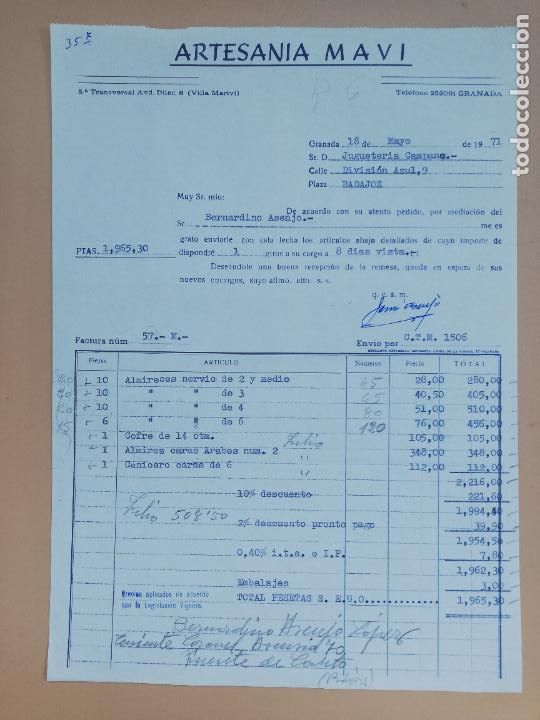 35
ARTESANIA MAVI
5ª Transversal Avd. Dílar, 6 (Villa Marivi)
Teléfono 259091 GRANADA
Granada 18 de Mayo de 1971
Sr. D. Jugueteria Campano.-
Calle División Azul,9
Plaza BADAJOZ
Muy Sr. mío:
De acuerdo con su atento pedido, por mediación del
Sr. Bernardino Asenjo.- me es
grato enviarle con esta fecha los artículos abajo detallados de cuyo importe de
PTAS. 1,965,30 dispondré 1 giros a su cargo a 8 dias vista.-
Deseándole una buena recepción de la remesa, queda en espera de sus
nuevos encargos, suyo affmo. atto. s. s.
q. e. s. m.
Factura núm 57.- M.-
Envío por C.T.M. 1506
Piezas ARTICULO Números Precio TOTAL
10 Almireces nervio de 2 y medio 45 28,00 280,00
10 " " de 3 65 40,50 405,00
10 " " de 4 80 51,00 510,00
6 " " de 6 120 76,00 456,00
1 Cofre de 14 ctm. Julio 105,00 105,00
1 Almirez caras Arabes num. 2 " 348,00 348,00
1 Cenicero caras de 6 " 112,00 112,00
2,216,00
10% descuento 221,60
Julio 508'50
1,994,40
2% descuento pronto pago 39,90
1,954,50
0,40% i.t.e. e I.P. 7,80
1,962,30
Embalajes 3,00
Precios aplicados de acuerdo
con la Legislación Vigente.
TOTAL PESETAS S. E.U.O........... 1,965,30
Bernardino Asenjo López
Teniente Coronel 70
Puente de
todocoleccion